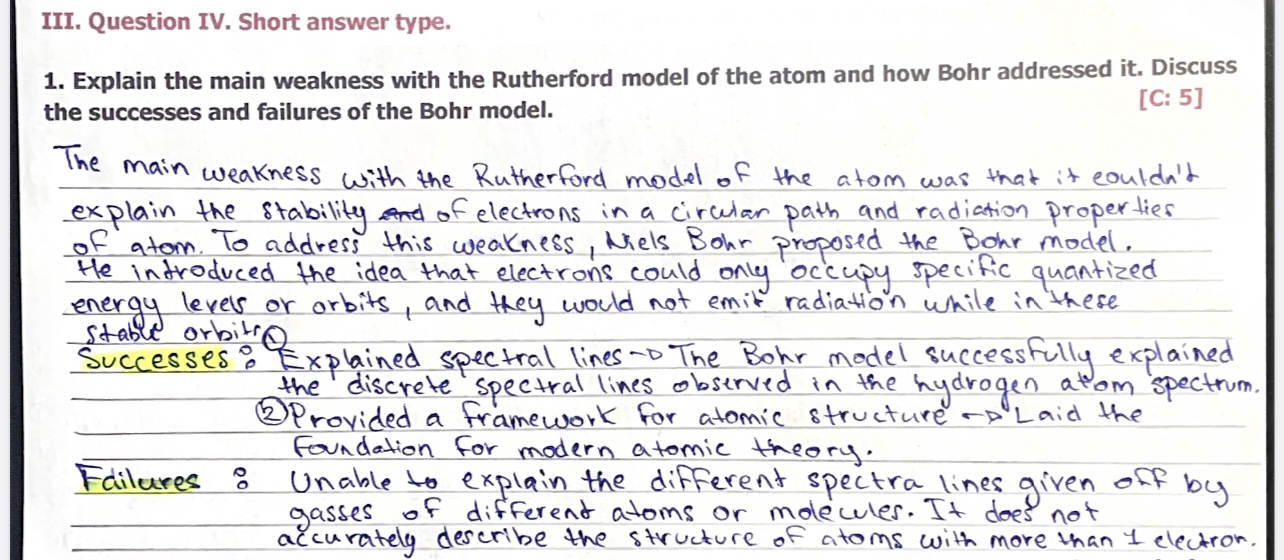 III. Question IV. Short answer type.
1. Explain the main weakness with the Rutherford model of the atom and how Bohr addressed it. Discuss
the successes and failures of the Bohr model.
[C: 5]
The main weakness with the Rutherford model of the atom was that it couldn't
explain the stability and of electrons in a circular path and radiation properties
of atom. To address this weakness, Niels Bohr proposed the Bohr model.
He introduced the idea that electrons could only occupy specific quantized
energy levels or orbits, and they would not emit radiation while in these
stable orbits
Successes : ① Explained spectral lines → The Bohr model successfully explained
the discrete spectral lines observed in the hydrogen atom spectrum.
② Provided a framework for atomic structure → Laid the
foundation for modern atomic theory.
Failures : Unable to explain the different spectra lines given off by
gasses of different atoms or molecules. It does not
accurately describe the structure of atoms with more than 1 electron.